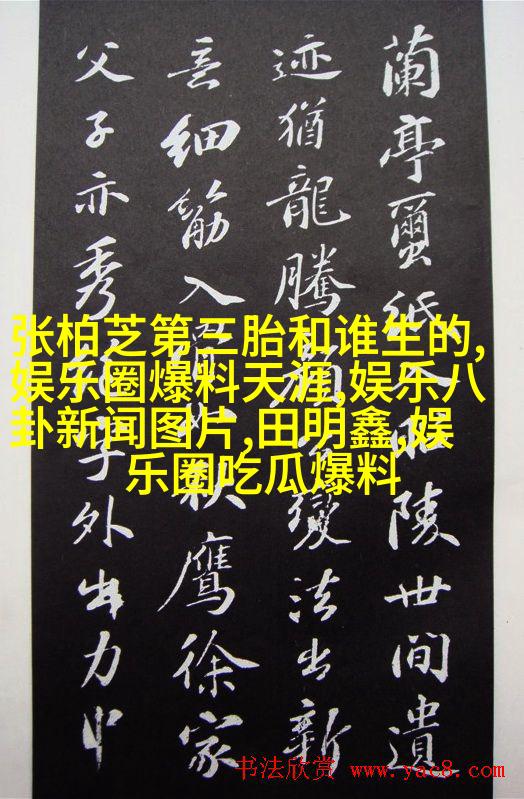 张柏芝第三胎和谁生的,
娱乐圈爆料天涯,娱乐八
卦新闻图片,田明鑫,娱
乐圈吃瓜爆料
蘭亭紙陵世間遺
迹猶龍騰變法出新
意細筋入秋鷹徐家
父子亦秀字外出力中
书法欣赏 www.yac8.com